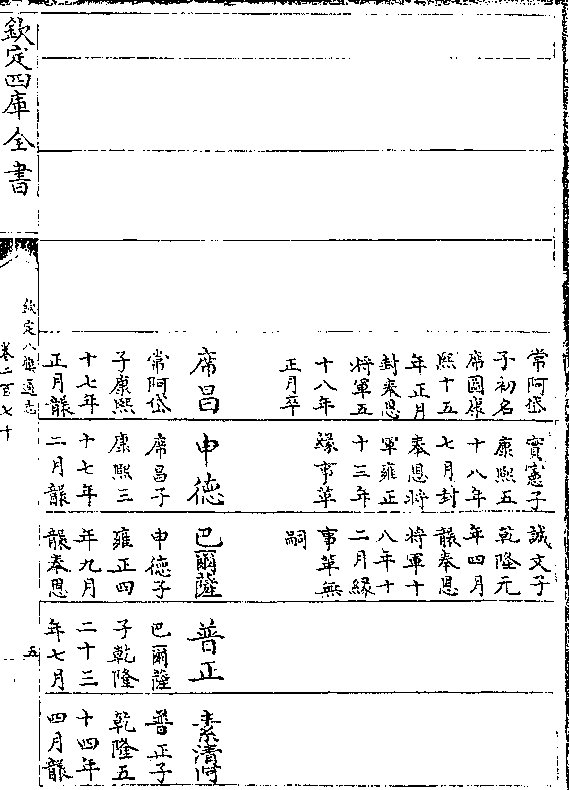 常阿岱
子初名
席圖康
熙十五
年正月
封奉恩
將軍五
十八年
正月卒
席昌
常阿岱
子康熙
十七年
正月襲
實憲子
康熙五
十八年
七月封
奉恩將
軍雍正
十三年
緣事革
申德
席昌子
康熙三
十七年
二月襲
誠文子
乾隆元
年四月
襲奉恩
將軍十
八年十
二月緣
事革無
嗣
巴爾薩
申德子
雍正四
年九月
襲奉恩
普正
巴爾薩
子乾隆
二十三
年七月
素清阿
普正子
乾隆五
十四年
四月襲
欽定四庫全書
欽定八旗通志
卷二百七十
五